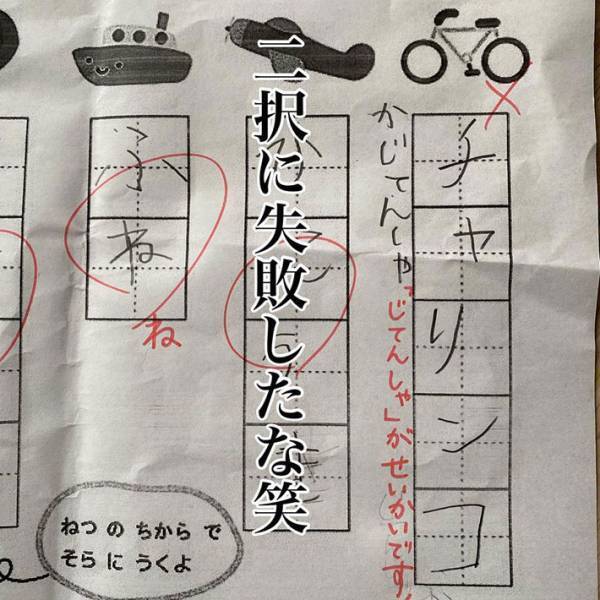 チャリンコ
かじてんしゃ
「じてんしゃ」がせいかいです!
二択に失敗したな笑
ふね
ね
ねつ の ちから で
そら に うくよ